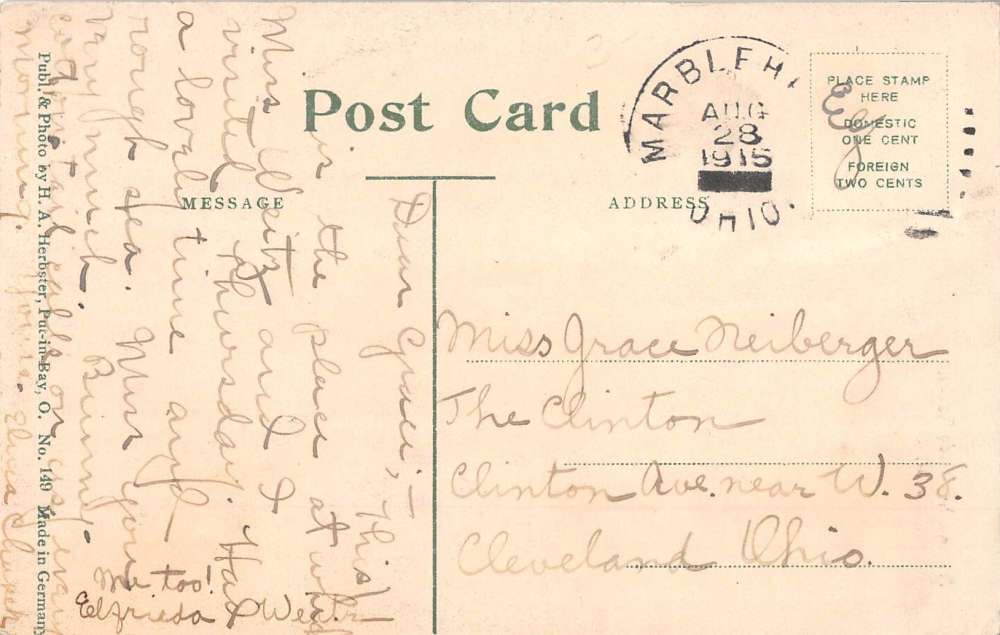 Post Card
MESSAGE
ADDRESS
MARBLEH
AUG
28
1915
OHIO.
PLACE STAMP
HERE
DOMESTIC
ONE CENT
FOREIGN
TWO CENTS
Dear Grace;-
This
is the place at which
Miss Weitz and I
visited Thursday. Had
a lovely time and
rough sea. Miss you
very much. Bunny
cotton tail calls on us every
morning. Yours. Elvira
Me too!
Elfrieda Weitz
Miss Grace Neiberger
The Clinton
Clinton Ave. near W. 38.
Cleveland Ohio.
Publ. & Photo by H. A. Herbster, Put-in-Bay, O. No. 149 Made in Germany